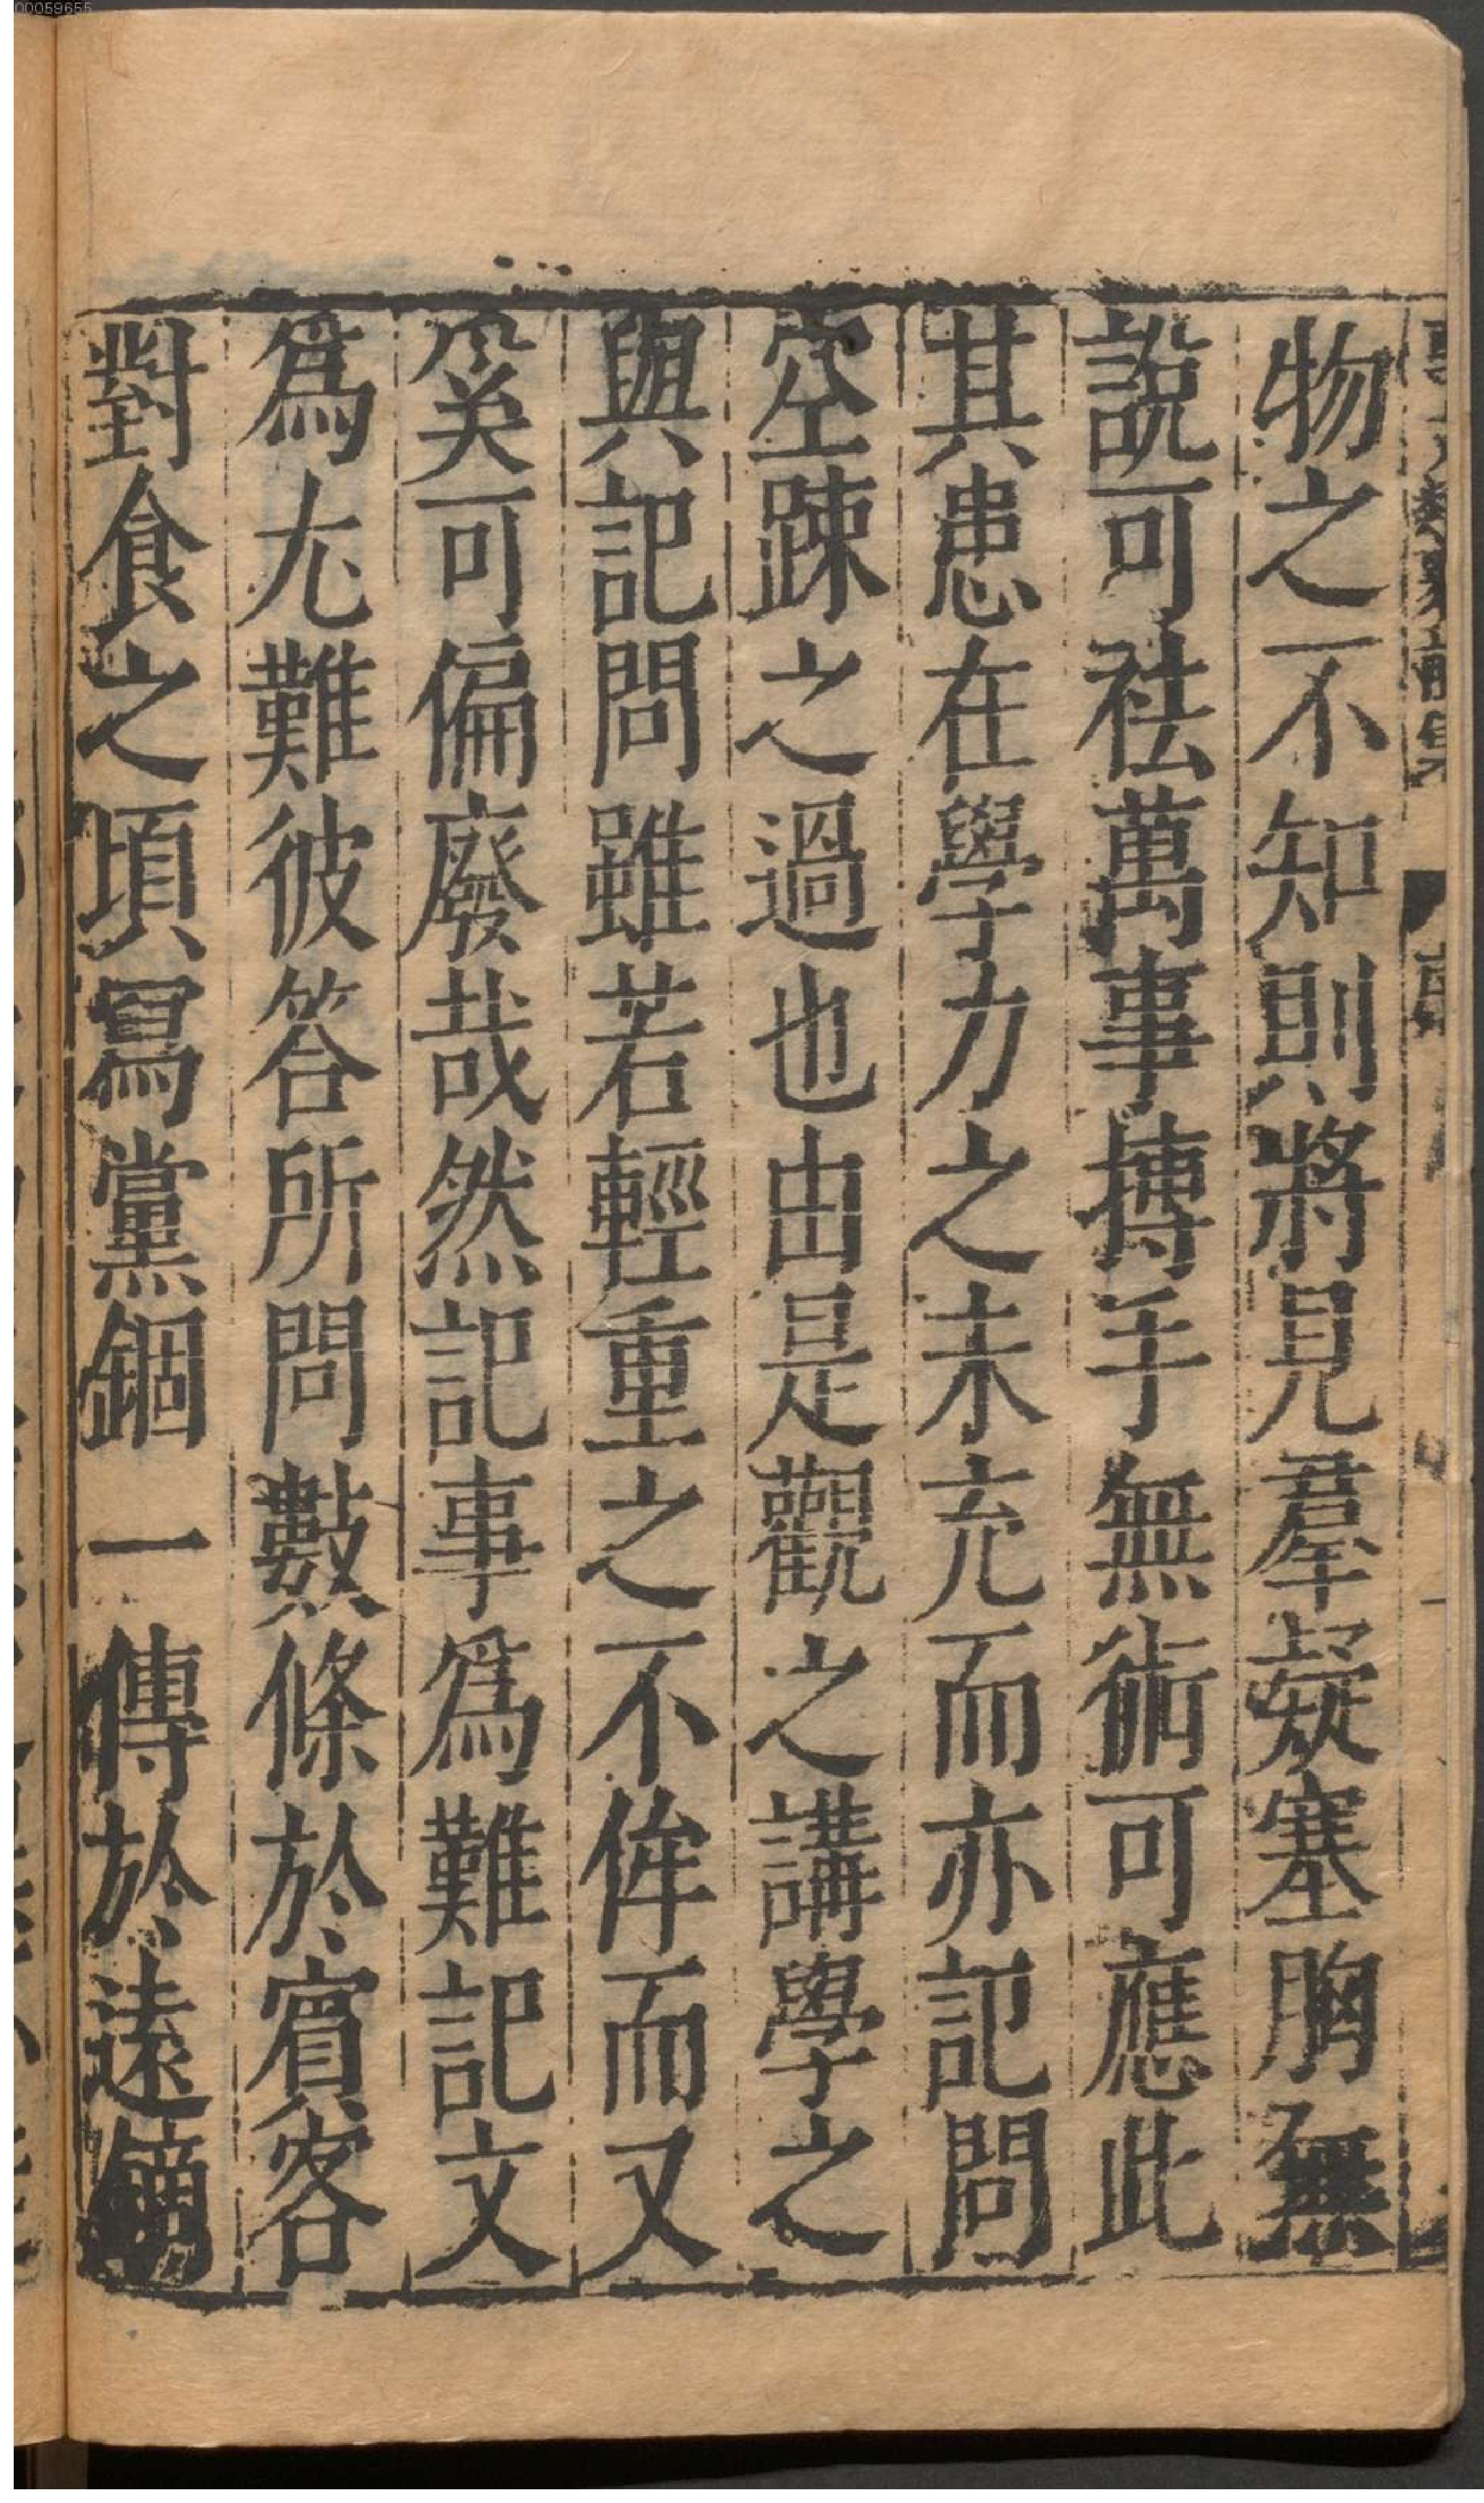 物之不知則將見羣凝塞胸無
說可袪萬事搏手無術可應此
其患在學力之未充而亦記問
空踈之過也由是觀之講學之
與記問雖若輕重之不侔而又
奚可偏廢哉然記事爲難記文
爲尢難彼答所問數條於賓客
對食之頃寫黨錮一傳於遠
00059655